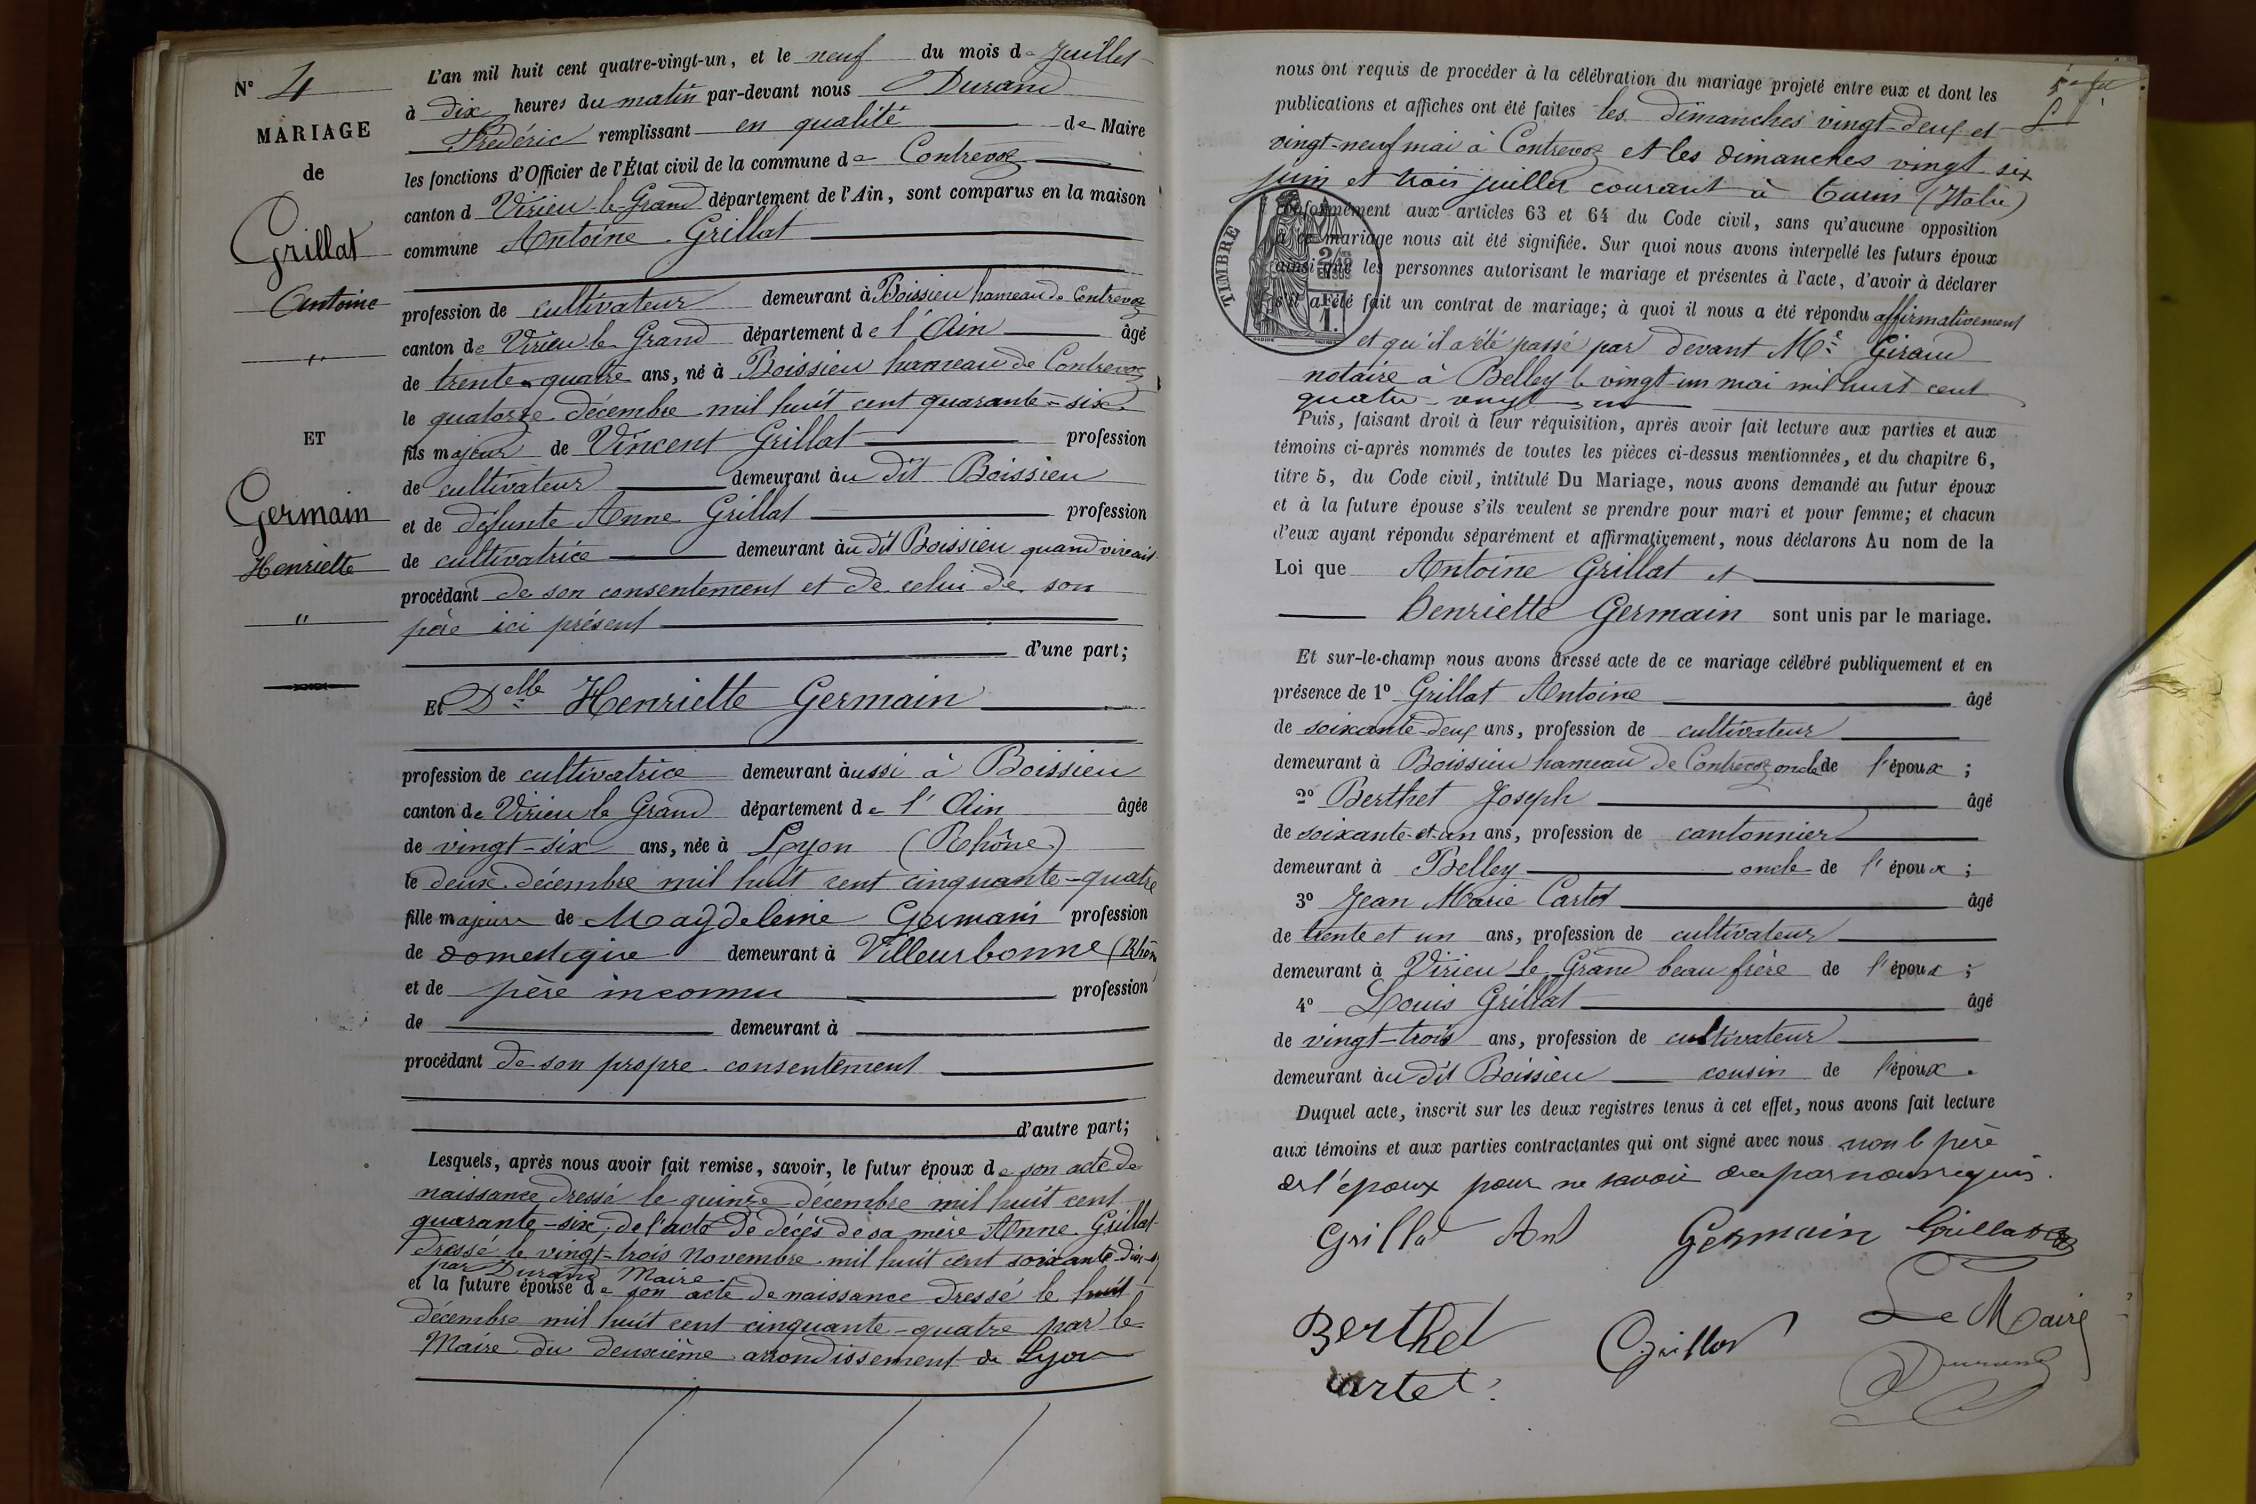 N° 4
MARIAGE
de
Grillat
Antoine
"
ET
Germain
Henriette
"
L'an mil huit cent quatre-vingt-un, et le neuf du mois de Juillet
à dix heures du matin par-devant nous Durand
Frédéric remplissant en qualité de Maire
les fonctions d'Officier de l'État civil de la commune de Contrevoz
canton d Virieu le Grand département de l'Ain, sont comparus en la maison
commune Antoine Grillat
profession de cultivateur demeurant à Boissieu hameau de Contrevoz
canton de Virieu le Grand département de l'Ain âgé
de trente-quatre ans, né à Boissieu hameau de Contrevoz
le quatorze décembre mil huit cent quarante-six
fils majeur de Vincent Grillat profession
de cultivateur demeurant àu dit Boissieu
et de défunte Anne Grillat profession
de cultivatrice demeurant àu dit Boissieu quand vivait
procédant de son consentement et de celui de son
père ici présent
d'une part;
Et Delle Henriette Germain
profession de cultivatrice demeurant àussi à Boissieu
canton de Virieu le Grand département de l'Ain âgée
de vingt-six ans, née à Lyon (Rhône)
le deux décembre mil huit cent cinquante-quatre
fille majeure de Magdeleine Germain profession
de domestique demeurant à Villeurbonne (Rhôn
et de père inconnu profession
de demeurant à
procédant de son propre consentement
d'autre part;
Lesquels, après nous avoir fait remise, savoir, le futur époux de son acte de
naissance dressé le quinze décembre mil huit cent
quarante-six, de l'acte de décès de sa mère Anne Grillat
dressé le vingt-trois Novembre mil huit cent soixante-dix-
par Durand Maire.
et la future épouse de son acte de naissance dressé le huit
décembre mil huit cent cinquante-quatre par le
Maire du deuxième arrondissement de Lyon
nous ont requis de procéder à la célébration du mariage projeté entre eux et dont les
publications et affiches ont été faites les dimanches vingt-deux et
vingt-neuf mai à Contrevoz et les dimanches vingt six
juin et trois juillet courant à Turin (Italie)
conformément aux articles 63 et 64 du Code civil, sans qu'aucune opposition
à ce mariage nous ait été signifiée. Sur quoi nous avons interpellé les futurs époux
ainsi que les personnes autorisant le mariage et présentes à l'acte, d'avoir à déclarer
s'il a été fait un contrat de mariage; à quoi il nous a été répondu affirmativement
TIMBRE
et qu'il a été passé par devant Me Giraud
notaire à Belley le vingt-un mai mil huit cent
quatre-vingt-un
Puis, faisant droit à leur réquisition, après avoir fait lecture aux parties et aux
témoins ci-après nommés de toutes les pièces ci-dessus mentionnées, et du chapitre 6,
titre 5, du Code civil, intitulé Du Mariage, nous avons demandé au futur époux
et à la future épouse s'ils veulent se prendre pour mari et pour femme; et chacun
d'eux ayant répondu séparément et affirmativement, nous déclarons Au nom de la
Loi que Antoine Grillat et
henriette Germain sont unis par le mariage.
Et sur-le-champ nous avons dressé acte de ce mariage célébré publiquement et en
présence de 1° Grillat Antoine âgé
de soixante-deux ans, profession de cultivateur
demeurant à Boissieu hameau de Contrevoz oncle de l'époux;
2° Berthet Joseph âgé
de soixante-et-un ans, profession de cantonnier
demeurant à Belley oncle de l'époux;
3° Jean Marie Cartet âgé
de trente et un ans, profession de cultivateur
demeurant à Virieu le Grand beau frère de l'époux;
4° Louis Grillat âgé
de vingt-trois ans, profession de cultivateur
demeurant àu dit Boissieu cousin de l'époux.
Duquel acte, inscrit sur les deux registres tenus à cet effet, nous avons fait lecture
aux témoins et aux parties contractantes qui ont signé avec nous non le père
de l'époux pour ne savoir de ce par nous requis.
Grillat Ant Germain Grillat
Berthet Grillat Le Maire
Cartet Durand